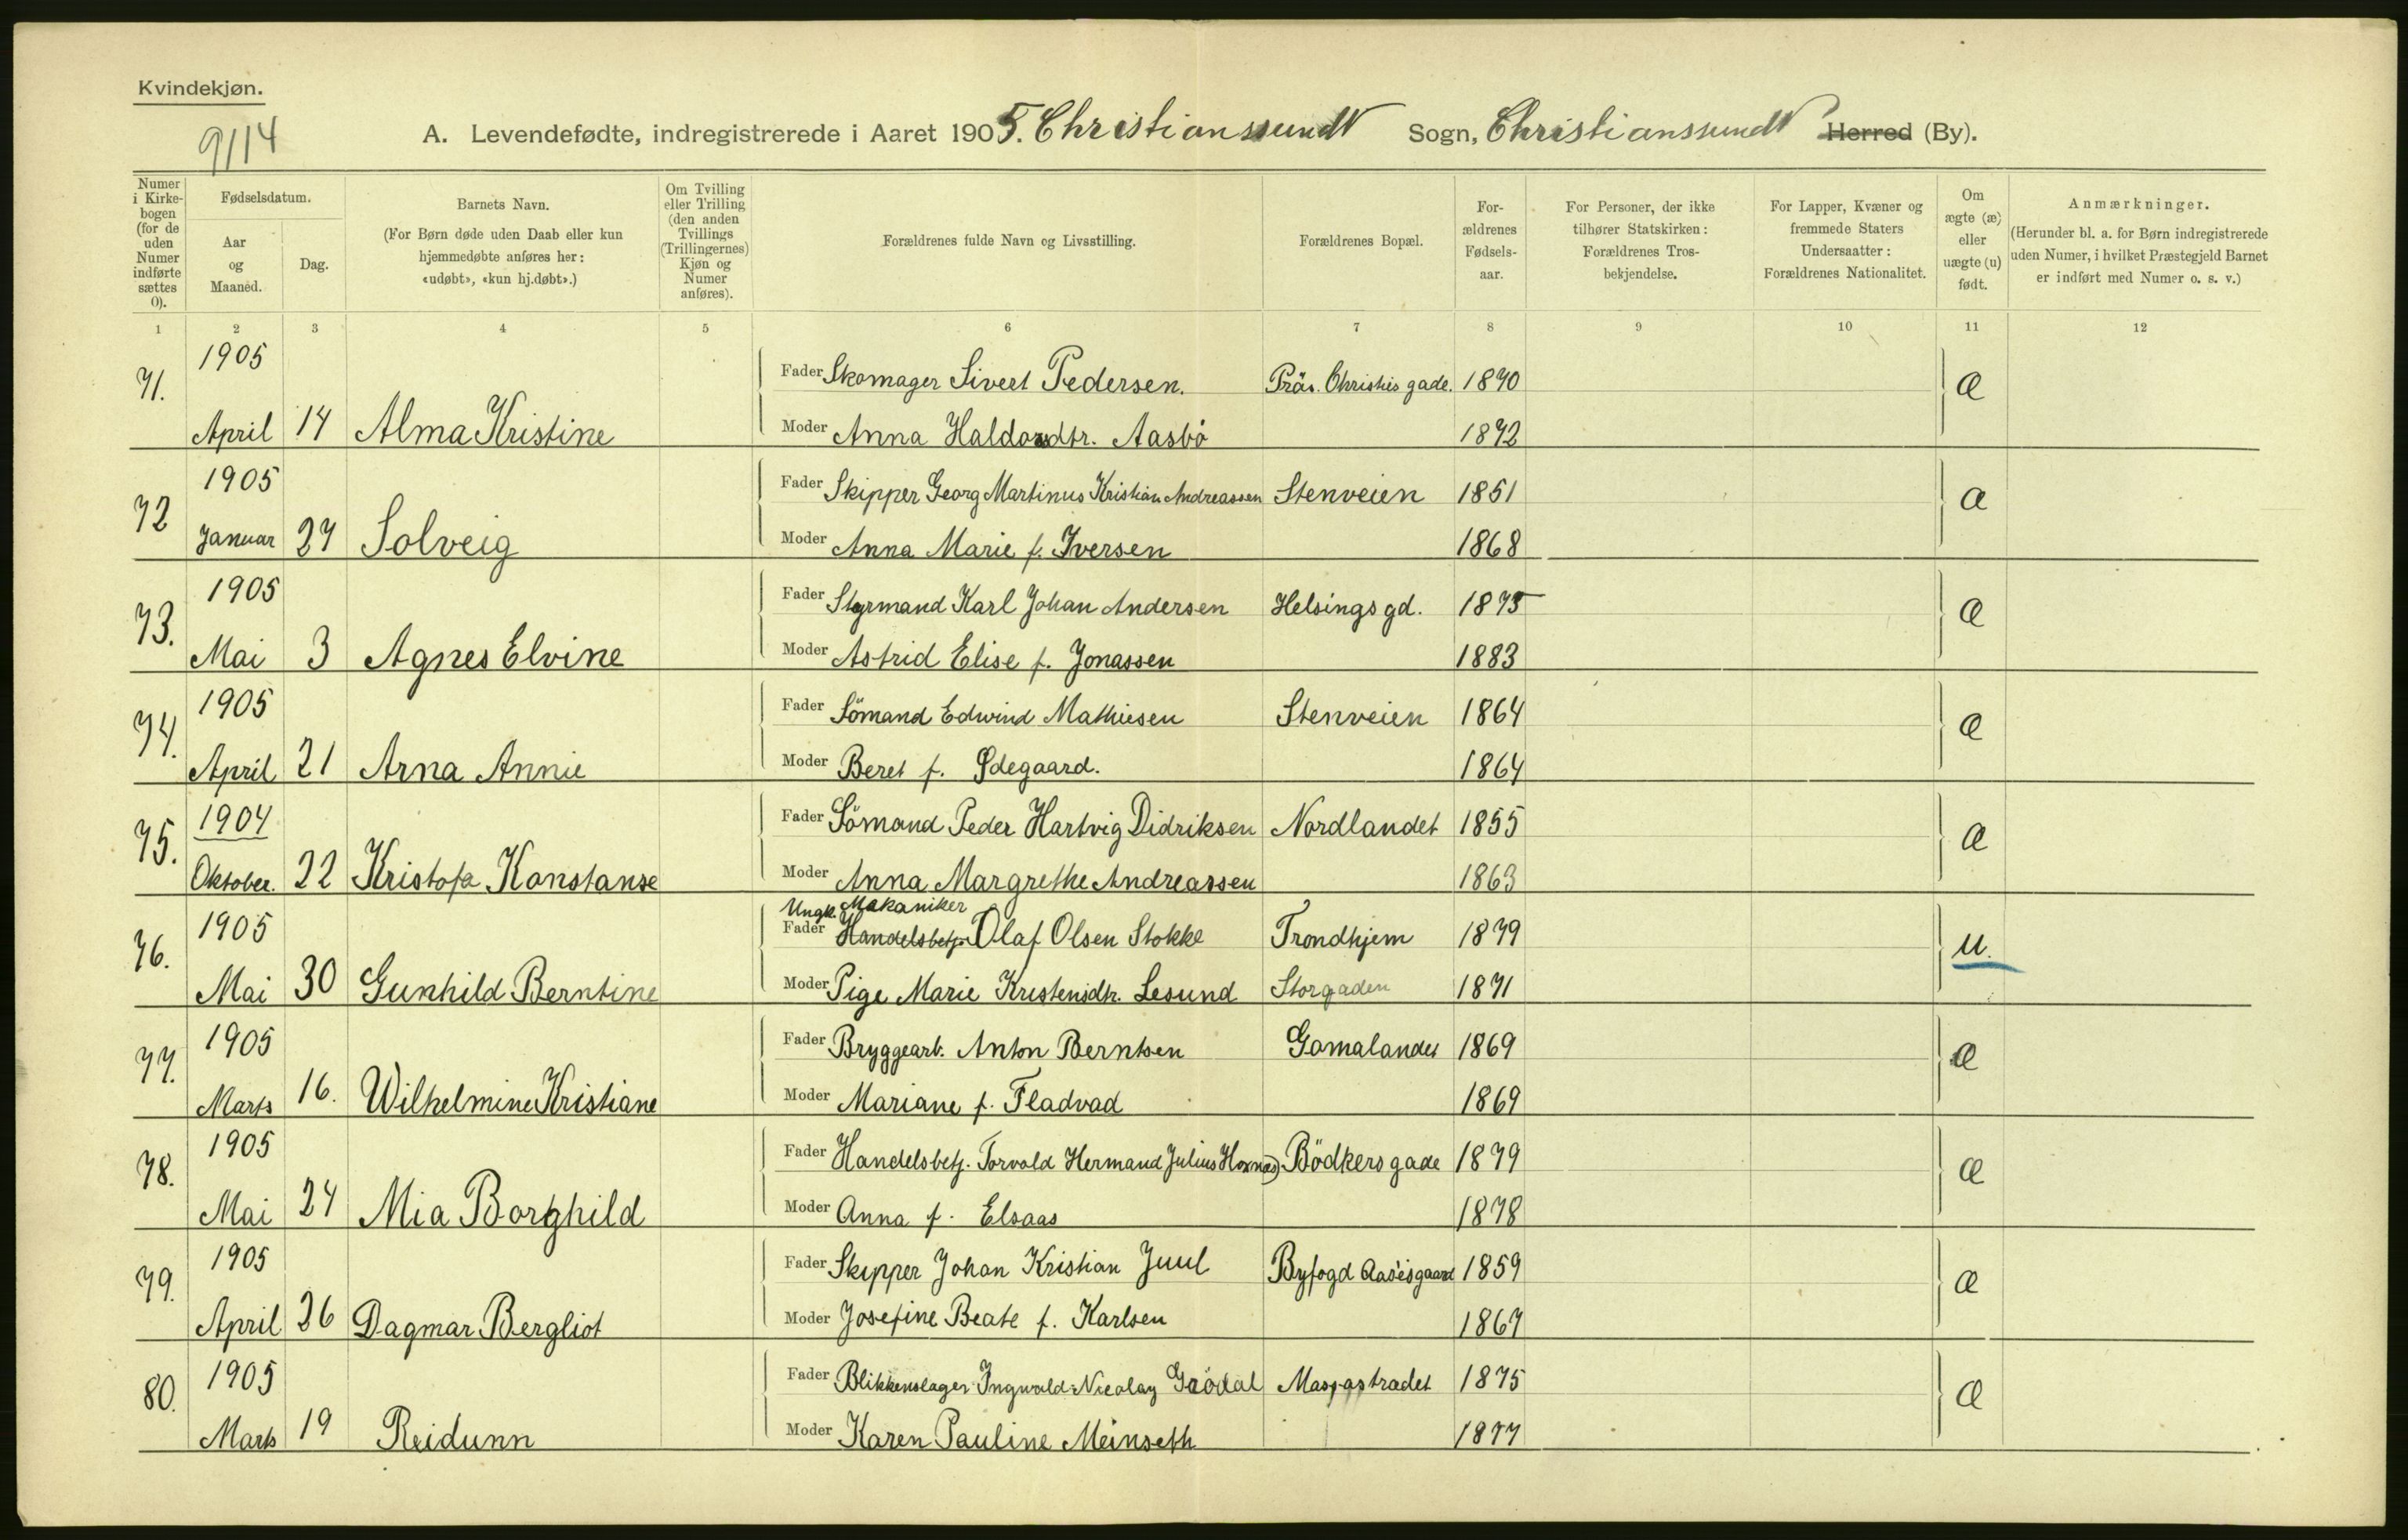 Kvindekjøn.
9114
A. Levendefødte, indregistrerede i Aaret 1905. Christianssund Sogn, Christianssund Herred (By).
Numer i Kirkebogen (for de uden Numer indførte sættes 0).
Fødselsdatum.
Aar og Maaned.
Dag.
Barnets Navn.
(For Børn døde uden Daab eller kun hjemmedøbte anføres her: «udøbt», «kun hj.døbt».)
Om Tvilling eller Trilling (den anden Tvillings (Trillingernes) Kjøn og Numer anføres).
Forældrenes fulde Navn og Livsstilling.
Forældrenes Bopæl.
Forældrenes Fødselsaar.
For Personer, der ikke tilhører Statskirken: Forældrenes Trosbekjendelse.
For Lapper, Kvæner og fremmede Staters Undersaatter: Forældrenes Nationalitet.
Om ægte (æ) eller uægte (u) født.
Anmærkninger.
(Herunder bl. a. for Børn indregistrerede uden Numer, i hvilket Præstegjeld Barnet er indført med Numer o. s. v.)
1 2 3 4 5 6 7 8 9 10 11 12
71. 1905 Fader Skomager Sivert Pedersen. Präs. Christies gade. 1870 æ
April 14 Alma Kristine Moder Anna Haldorsdtr. Aasbö 1872
72 1905 Fader Skipper Georg Martinus Kristian Andreassen Stenveien 1851 æ
Januar 27 Solveig Moder Anna Marie f. Iversen 1868
73. 1905 Fader Styrmand Karl Johan Andersen Helsingsgd. 1875 æ
Mai 3 Agnes Elvine Moder Astrid Elise f. Jonassen 1883
74. 1905 Fader Sömand Edwind Mathiesen Stenveien 1864 æ
April 21 Arna Annie Moder Beret f. Ödegaard. 1864
75. 1904 Fader Sömand Peder Hartvig Didriksen Nordlandet 1855 æ
Oktober. 22 Kristofa Konstanse Moder Anna Margrethe Andreassen 1863
Ungk. Mekaniker
76. 1905 Fader Handelsbetj. Olaf Olsen Stokke Trondhjem 1879 u.
Mai 30 Gunhild Berntine Moder Pige Marie Kristensdtr. Lesund Storgaden 1871
77. 1905 Fader Bryggearb. Anton Berntsen Gomalandet 1869 æ
Marts 16. Wilhelmine Kristiane Moder Mariane f. Fladvad 1869
78. 1905 Fader Handelsbetj. Torvald Hermand Julius Hoxnæs Bödkersgade 1879 æ
Mai 24 Mia Borghild Moder Anna f. Elsaas 1878
79. 1905 Fader Skipper Johan Kristian Juul Byfogd Aasesgaard 1859 æ
April 26 Dagmar Bergliot Moder Josefine Beate f. Karlsen 1867
80. 1905 Fader Blikkenslager Ingwald Nicolay Grödal 1875 æ
Marts 19 Reidunn Moder Karen Pauline Meinseth 1877